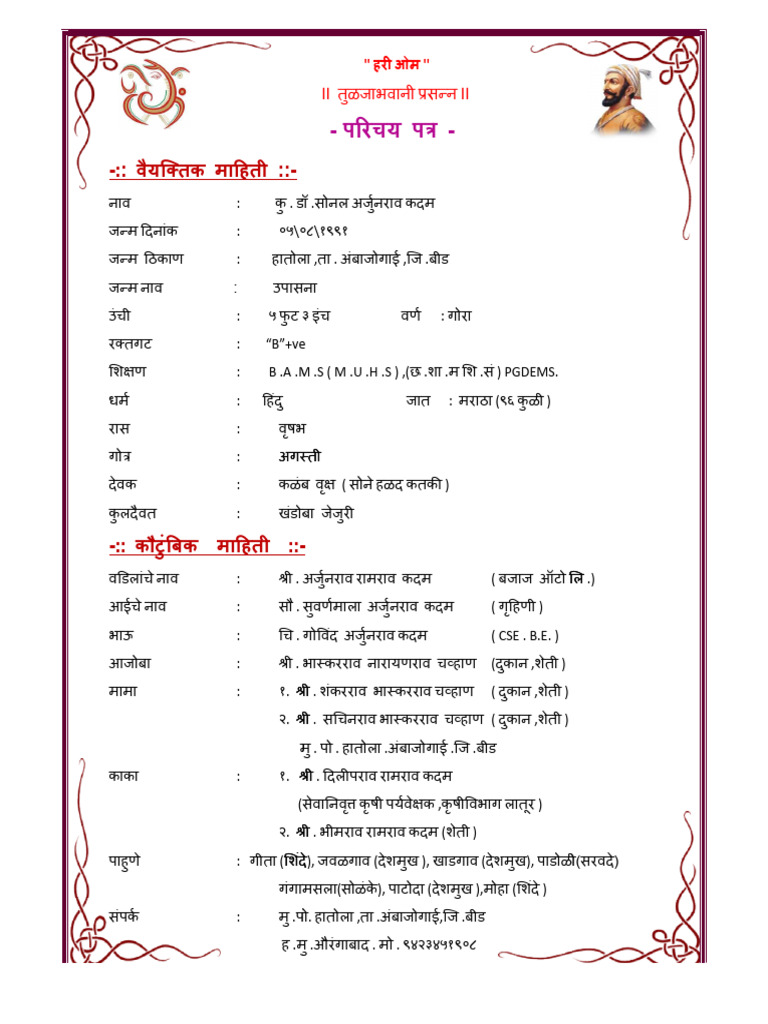 " हरी ओम "
II तुळजाभवानी प्रसन्न II
- परिचय पत्र -
-:: वैयक्तिक माहिती ::-
नाव : कु . डॉ .सोनल अर्जुनराव कदम
जन्म दिनांक : ०५\०८\१९९१
जन्म ठिकाण : हातोला ,ता . अंबाजोगाई ,जि .बीड
जन्म नाव : उपासना
उंची : ५ फुट ३ इंच वर्ण : गोरा
रक्तगट : “B”+ve
शिक्षण : B .A .M .S ( M .U .H .S ) ,(छ .शा .म शि .सं ) PGDEMS.
धर्म : हिंदु जात : मराठा (९६ कुळी )
रास : वृषभ
गोत्र : अगस्ती
देवक : कळंब वृक्ष ( सोने हळद कतकी )
कुलदैवत : खंडोबा जेजुरी
-:: कौटुंबिक माहिती ::-
वडिलांचे नाव : श्री . अर्जुनराव रामराव कदम ( बजाज ऑटो लि .)
आईचे नाव : सौ . सुवर्णमाला अर्जुनराव कदम ( गृहिणी )
भाऊ : चि . गोविंद अर्जुनराव कदम ( CSE . B.E. )
आजोबा : श्री . भास्करराव नारायणराव चव्हाण (दुकान ,शेती )
मामा : १. श्री . शंकरराव भास्करराव चव्हाण ( दुकान ,शेती )
२. श्री . सचिनराव भास्करराव चव्हाण ( दुकान ,शेती )
मु . पो . हातोला .अंबाजोगाई .जि .बीड
काका : १. श्री . दिलीपराव रामराव कदम
(सेवानिवृत्त कृषी पर्यवेक्षक ,कृषीविभाग लातूर )
२. श्री . भीमराव रामराव कदम (शेती )
पाहुणे : गीता (शिंदे), जवळगाव (देशमुख ), खाडगाव (देशमुख), पाडोळी(सरवदे)
गंगामसला(सोळंके), पाटोदा (देशमुख ),मोहा (शिंदे )
संपर्क : मु .पो. हातोला ,ता .अंबाजोगाई,जि .बीड
ह .मु .औरंगाबाद . मो . ९४२३४५१९०८